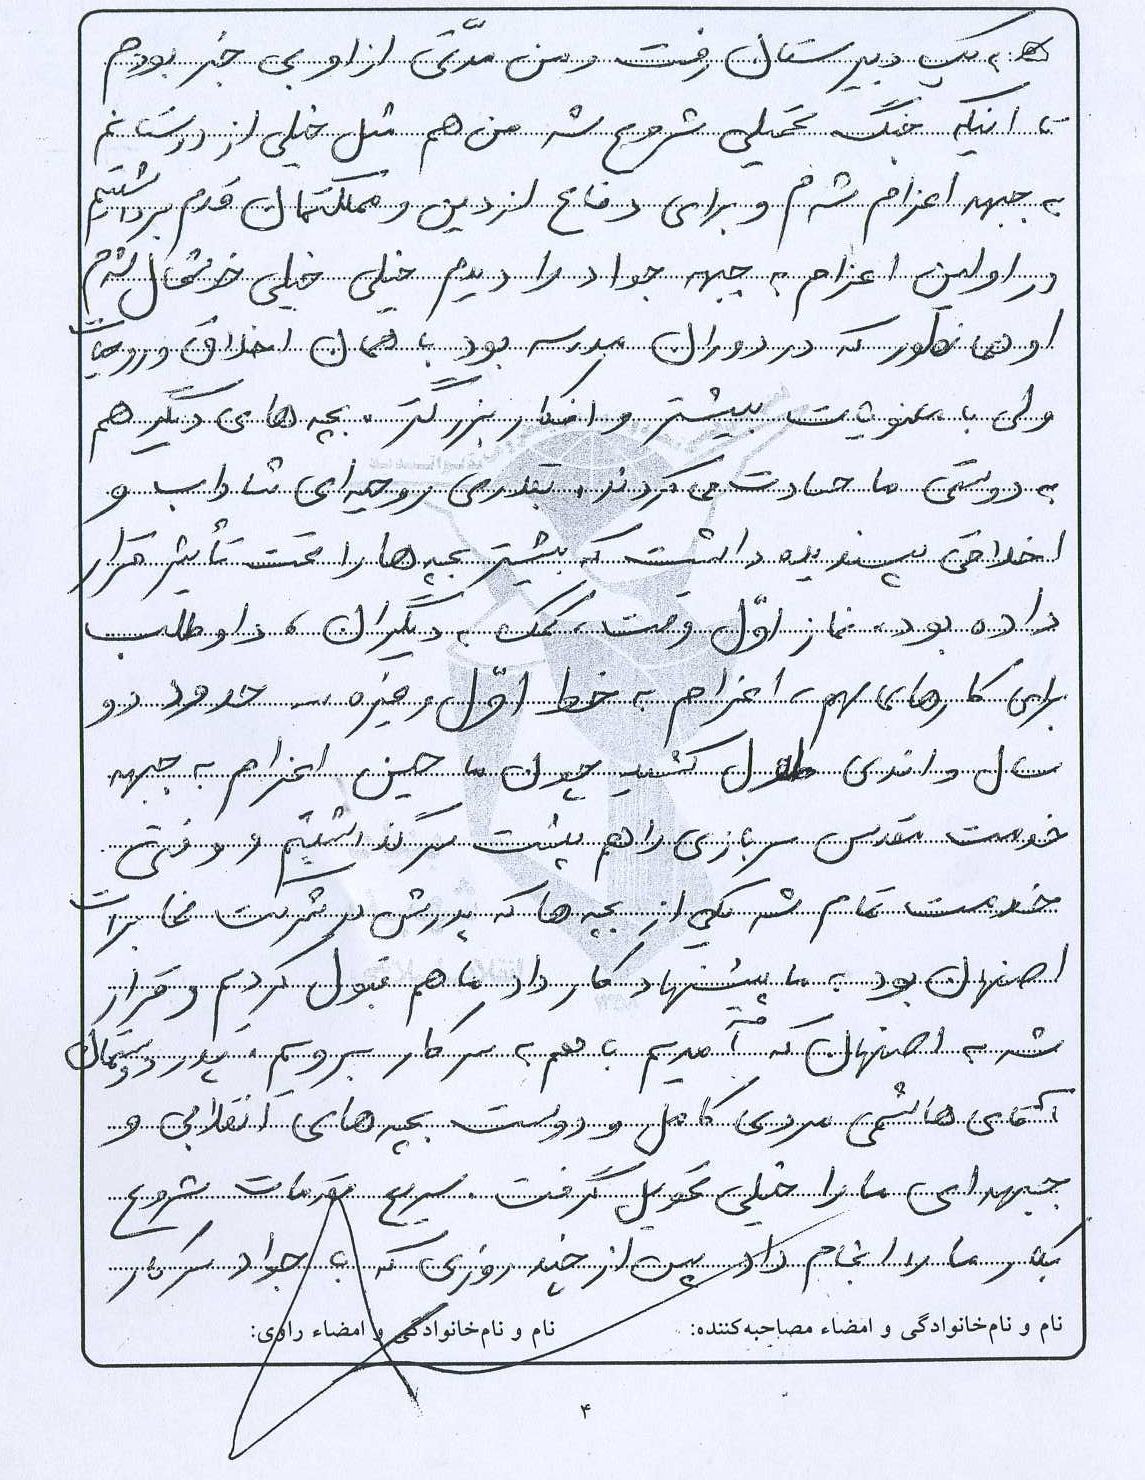 به یک دبیرستان رفت و من مدّتی از او بی خبر بودم
تا اینکه جنگ تحمیلی شروع شد من هم مثل خیلی از دوستانم
به جبهه اعزام شدم و برای دفاع از دین و مملکتمان قدم برداشتیم
در اولین اعزام به جبهه جواد را دیدم خیلی خیلی خوشحال شدم
او همانطور که در دوران مدرسه بود با همان اخلاق و روحیات
ولی با معنویات بیشتر و افکار بزرگتر. بچه های دیگر هم
به دوستی ما حسادت می کردند. بقدری روحیه ای شاداب و
اخلاقی پسندیده داشت که بیشتر بچه ها را تحت تأثیر قرار
داده بود. نماز اوّل وقت، کمک به دیگران، داوطلب
برای کارهای مهم، اعزام به خط اوّل و غیره حدود دو
سال و اندی طول کشید چون ما حین اعزام به جبهه
خدمت مقدس سربازی را هم پشت سر گذاشتیم و وقتی
خدمت تمام شد یکی از بچه ها که پدرش در شرکت مخابرات
اصفهان بود به ما پیشنهاد کار داد ما هم قبول کردیم و قرار
شد به اصفهان که آمدیم با هم به سر کار برویم. پدر دوستمان
آقای هاشمی مردی کامل و دوست بچه های انقلابی و
جبهه ای ما را خیلی تحویل گرفت. سریع مقدمات شروع
بکار ما را انجام داد پس از چند روزی که با جواد سر کار
نام و نام‌خانوادگی و امضاء مصاحبه‌کننده: نام و نام‌خانوادگی و امضاء راوی:
۴